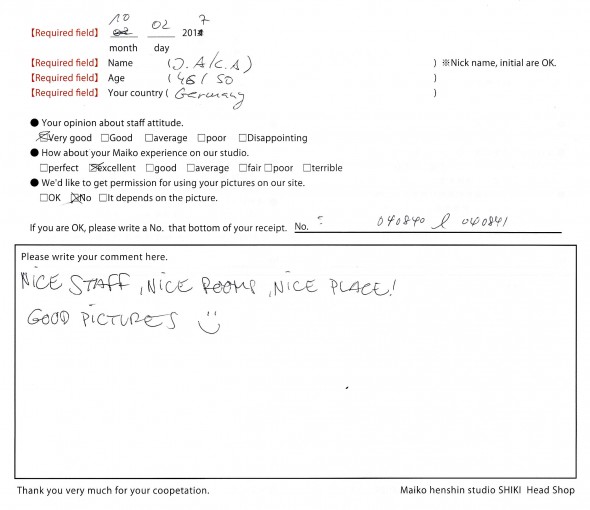 10
02 02 2017
【Required field】 month day
【Required field】 Name (J.A/C.A) ) ※Nick name, initial are OK.
【Required field】 Age (46/50 )
【Required field】 Your country ( Germany )
● Your opinion about staff attitude.
☒Very good □Good □average □poor □Disappointing
● How about your Maiko experience on our studio.
□perfect ☒excellent □good □average □fair □poor □terrible
● We'd like to get permission for using your pictures on our site.
□OK ☒No □It depends on the picture.
If you are OK, please write a No. that bottom of your receipt. No. 040840 040841
Please write your comment here.
NICE STAFF, NICE ROOMS, NICE PLACE!
GOOD PICTURES
Thank you very much for your coopetation. Maiko henshin studio SHIKI Head Shop